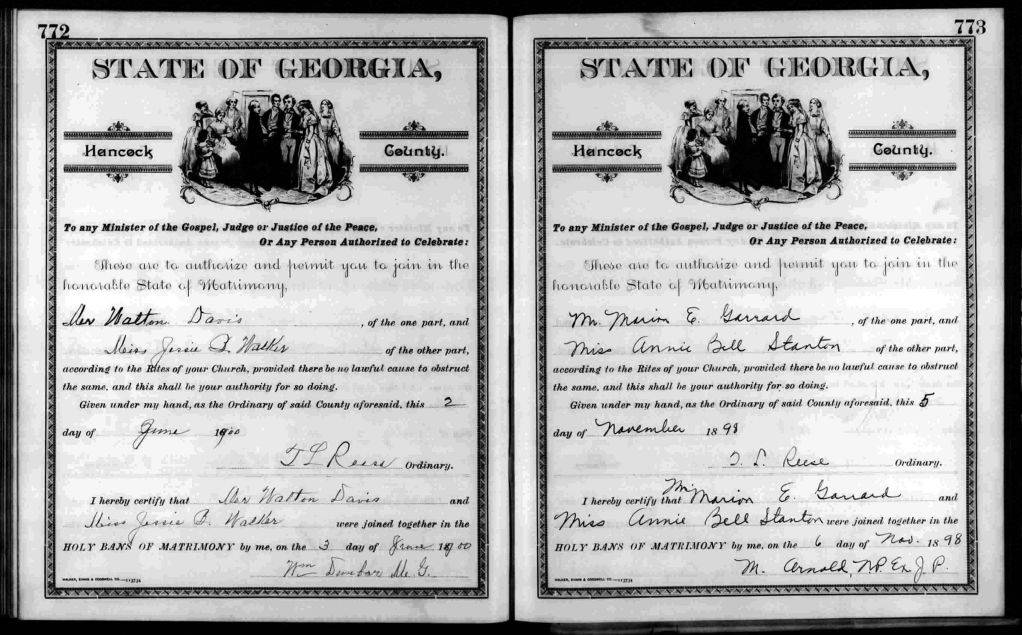 772
STATE OF GEORGIA,
Hancock County.
To any Minister of the Gospel, Judge or Justice of the Peace,
Or Any Person Authorized to Celebrate:
These are to authorize and permit you to join in the
honorable State of Matrimony,
Mr Walton Davis, of the one part, and
Miss Jessie B. Walker of the other part,
according to the Rites of your Church, provided there be no lawful cause to obstruct
the same, and this shall be your authority for so doing.
Given under my hand, as the Ordinary of said County aforesaid, this 2
day of June 1900
T L Reese Ordinary.
I hereby certify that Mr Walton Davis and
Miss Jessie B. Walker were joined together in the
HOLY BANS OF MATRIMONY by me, on the 3 day of June 1900
Wm Dunbar M. G.
WALKER, EVANS & COGSWELL CO.
773
STATE OF GEORGIA,
Hancock County.
To any Minister of the Gospel, Judge or Justice of the Peace,
Or Any Person Authorized to Celebrate:
These are to authorize and permit you to join in the
honorable State of Matrimony,
Mr. Marion E. Garrard, of the one part, and
Miss Annie Bell Stanton of the other part,
according to the Rites of your Church, provided there be no lawful cause to obstruct
the same, and this shall be your authority for so doing.
Given under my hand, as the Ordinary of said County aforesaid, this 5
day of November 1898
T. L. Reese Ordinary.
I hereby certify that Mr Marion E. Garrard and
Miss Annie Bell Stanton were joined together in the
HOLY BANS OF MATRIMONY by me, on the 6 day of Nov. 1898
M. Arnold, N.P. Ex J. P.
WALKER, EVANS & COGSWELL CO.